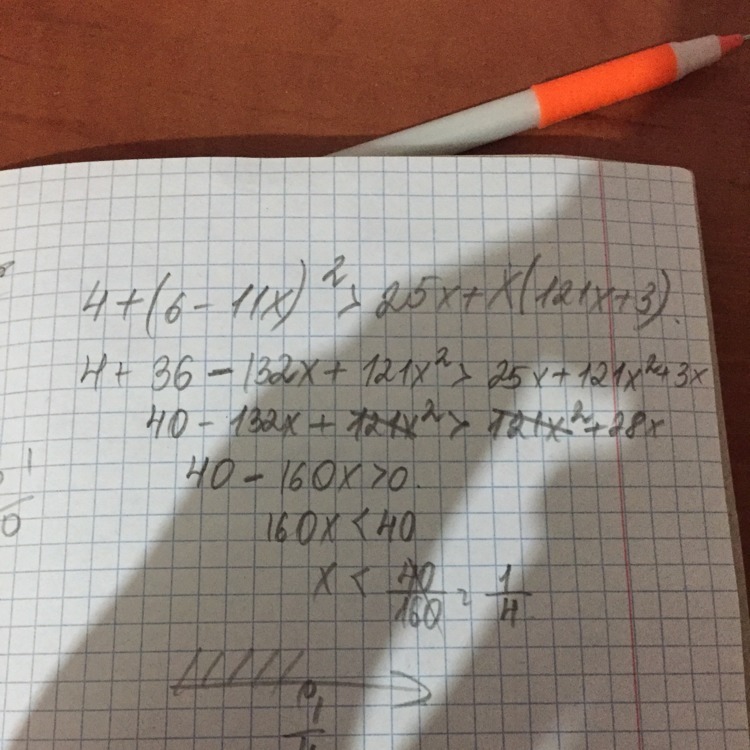 4 + (6 - 11x)² > 25x + x(121x + 3).
4 + 36 - 132x + 121x² > 25x + 121x² + 3x
40 - 132x + 121x² > 121x² + 28x
40 - 160x > 0.
160x < 40
x < 40/160 = 1/4
1/4